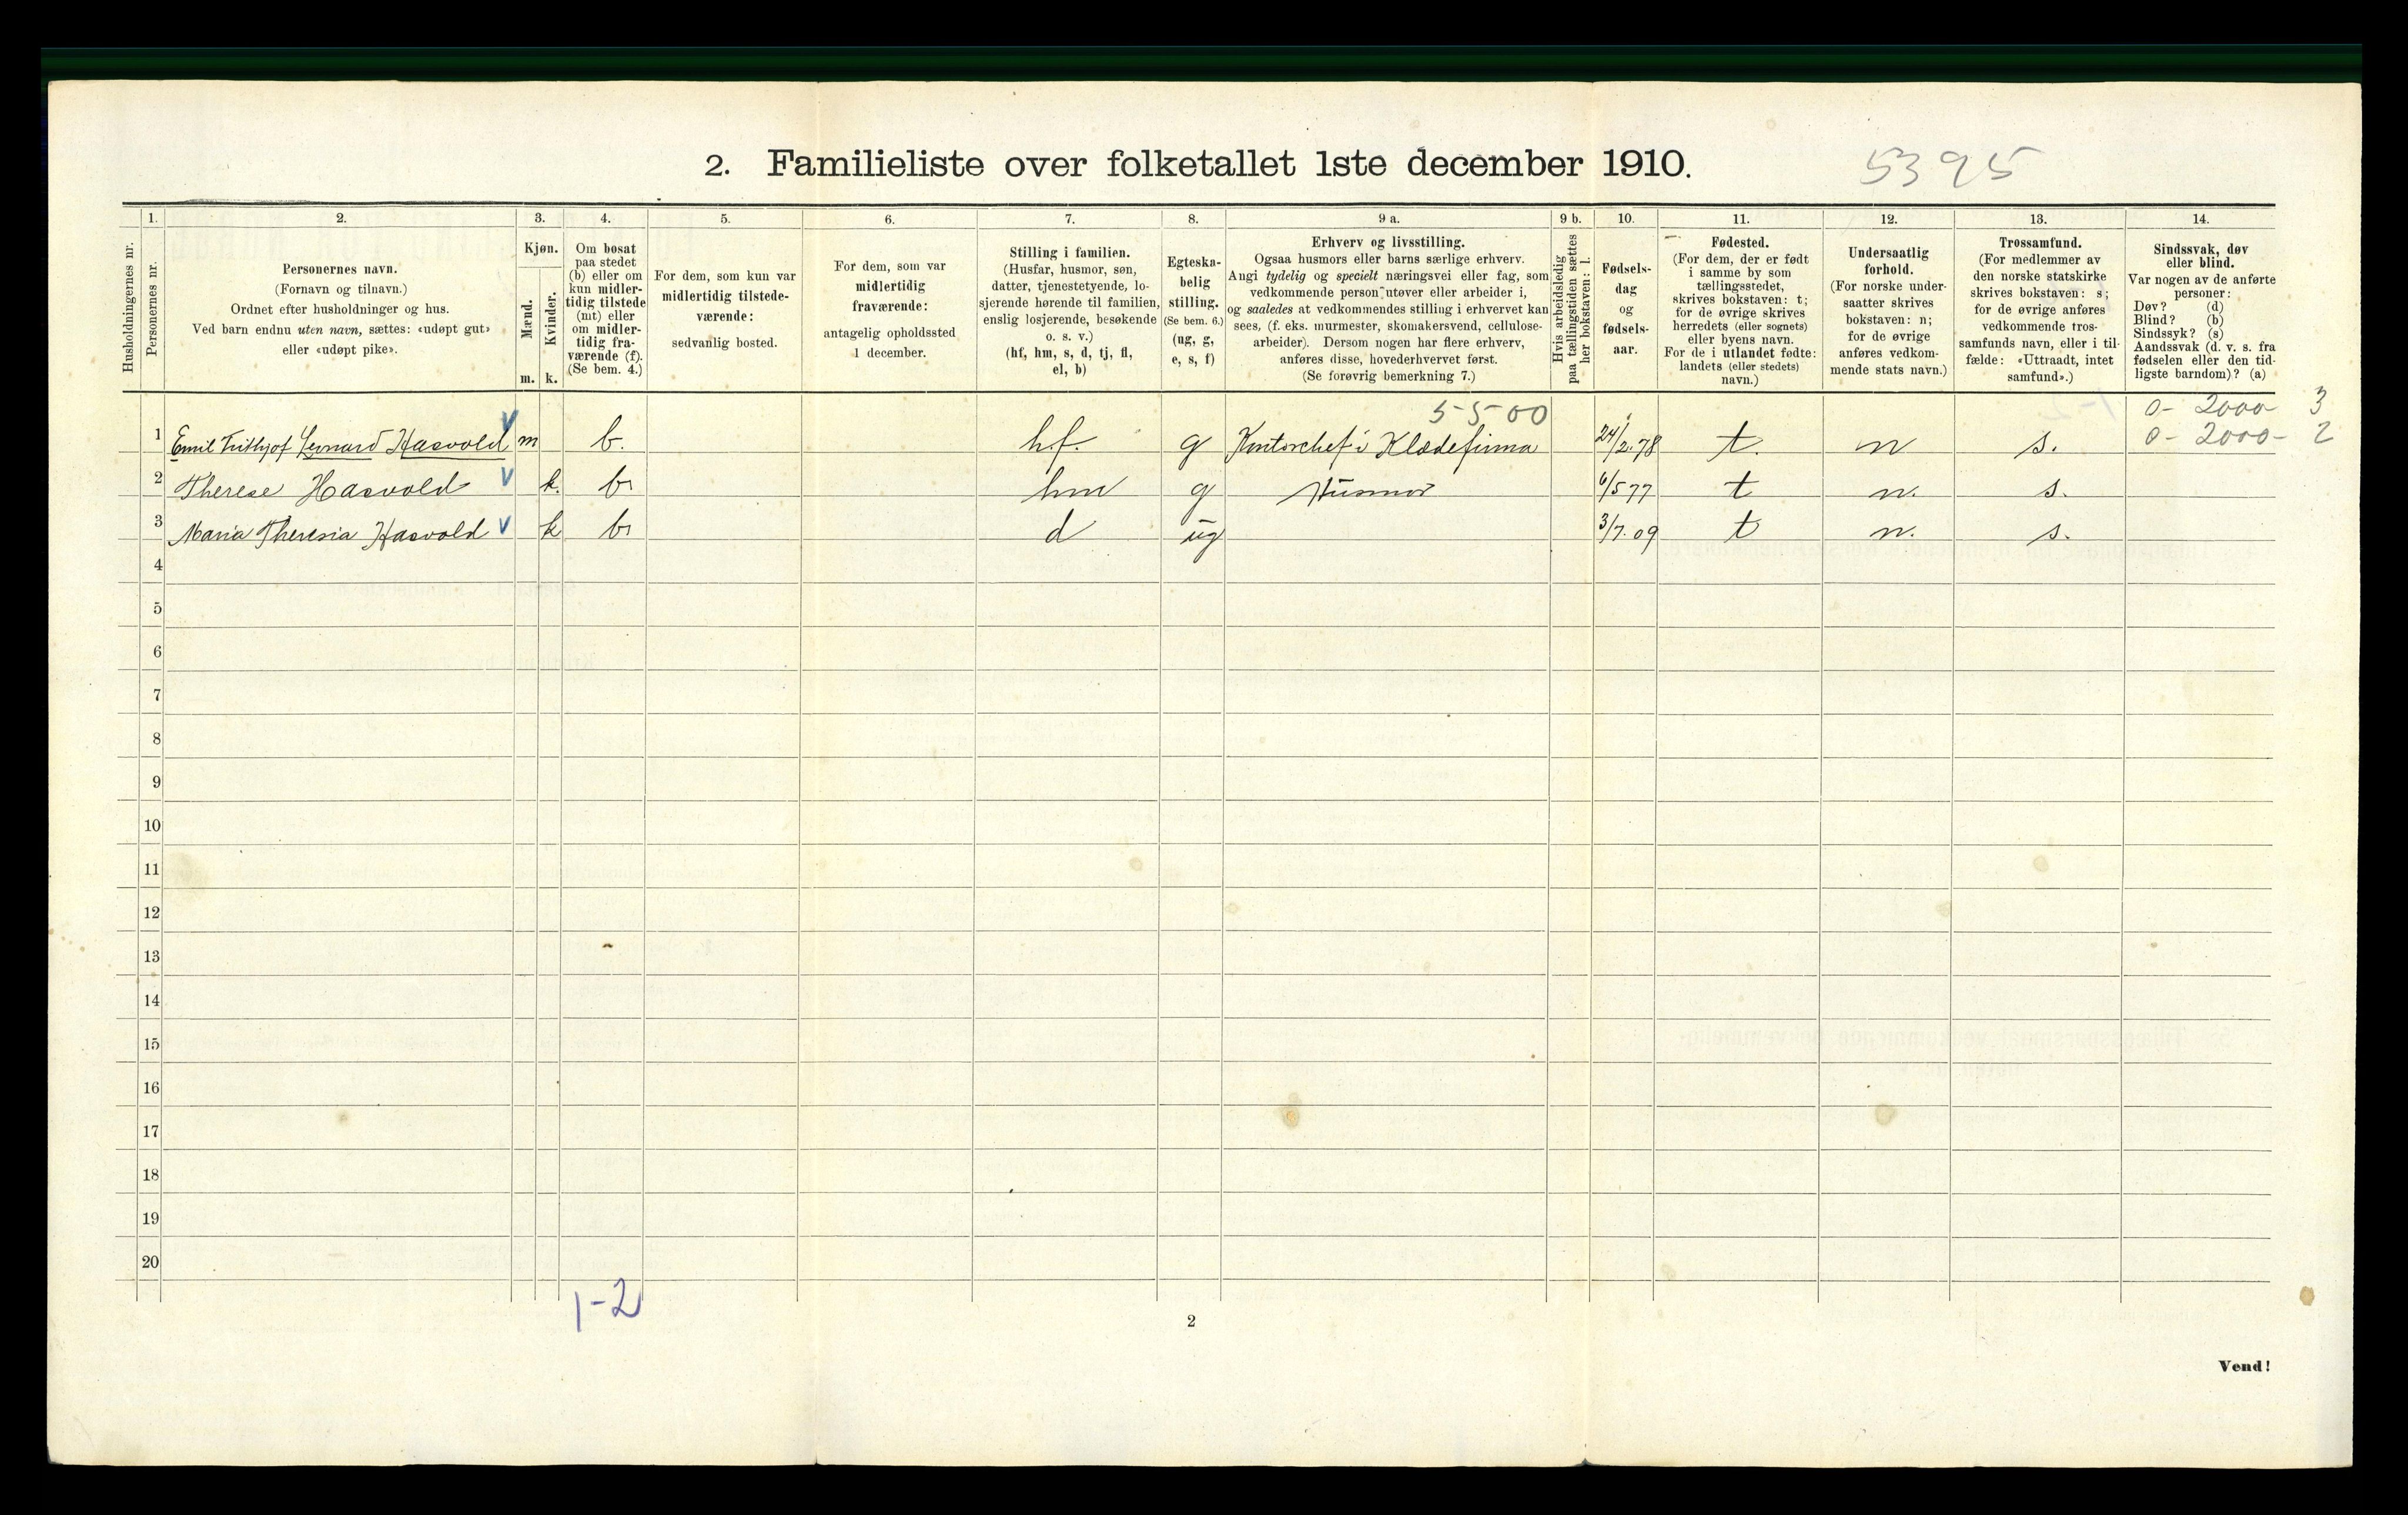 2. Familieliste over folketallet 1ste december 1910.
5395
Husholdningernes nr.
1.
Personernes nr.
2.
Personernes navn.
(Fornavn og tilnavn.)
Ordnet efter husholdninger og hus.
Ved barn endnu uten navn, sættes: «udøpt gut»
eller «udøpt pike».
3.
Kjøn.
Mænd.
m.
Kvinder.
k.
4.
Om bosat
paa stedet
(b) eller om
kun midler-
tidig tilstede
(mt) eller
om midler-
tidig fra-
værende (f).
(Se bem. 4.)
5.
For dem, som kun var
midlertidig tilstede-
værende:
sedvanlig bosted.
6.
For dem, som var
midlertidig
fraværende:
antagelig opholdssted
1 december.
7.
Stilling i familien.
(Husfar, husmor, søn,
datter, tjenestetyende, lo-
sjerende hørende til familien,
enslig losjerende, besøkende
o. s. v.)
(hf, hm, s, d, tj, fl,
el, b)
8.
Egteska-
belig
stilling.
(Se bem. 6.)
(ug, g,
e, s, f)
9 a.
Erhverv og livsstilling.
Ogsaa husmors eller barns særlige erhverv.
Angi tydelig og specielt næringsvei eller fag, som
vedkommende person utøver eller arbeider i,
og saaledes at vedkommendes stilling i erhvervet kan
sees, (f. eks. murmester, skomakersvend, cellulose-
arbeider). Dersom nogen har flere erhverv,
anføres disse, hovederhvervet først.
(Se forøvrig bemerkning 7.)
9 b.
Hvis arbeidsledig
paa tællingstiden sættes
her bokstaven: l.
10.
Fødsels-
dag
og
fødsels-
aar.
11.
Fødested.
(For dem, der er født
i samme by som
tællingsstedet,
skrives bokstaven: t;
for de øvrige skrives
herredets (eller sognets)
eller byens navn.
For de i utlandet fødte:
landets (eller stedets)
navn.)
12.
Undersaatlig
forhold.
(For norske under-
saatter skrives
bokstaven: n;
for de øvrige
anføres vedkom-
mende stats navn.)
13.
Trossamfund.
(For medlemmer av
den norske statskirke
skrives bokstaven: s;
for de øvrige anføres
vedkommende tros-
samfunds navn, eller i til-
fælde: «Uttraadt, intet
samfund».)
14.
Sindssvak, døv
eller blind.
Var nogen av de anførte
personer:
Døv? (d)
Blind? (b)
Sindssyk? (s)
Aandssvak (d. v. s. fra
fødselen eller den tid-
ligste barndom)? (a)
5-5-00
0- 2000- 3
0- 2000- 2
1 Emil Frithjof Leonard Hasvold V m b. hf. g Kontorchef i Klædefirma 24/2.78 t. n s.
2 Therese Hasvold V k. b hm g Husmor 6/5 77 t n. s.
3 Maria Theresia Hasvold V k b d ug 3/7.09 t n. s.
4
5
6
7
8
9
10
11
12
13
14
15
16
17
18
19
20
1-2
2
Vend!